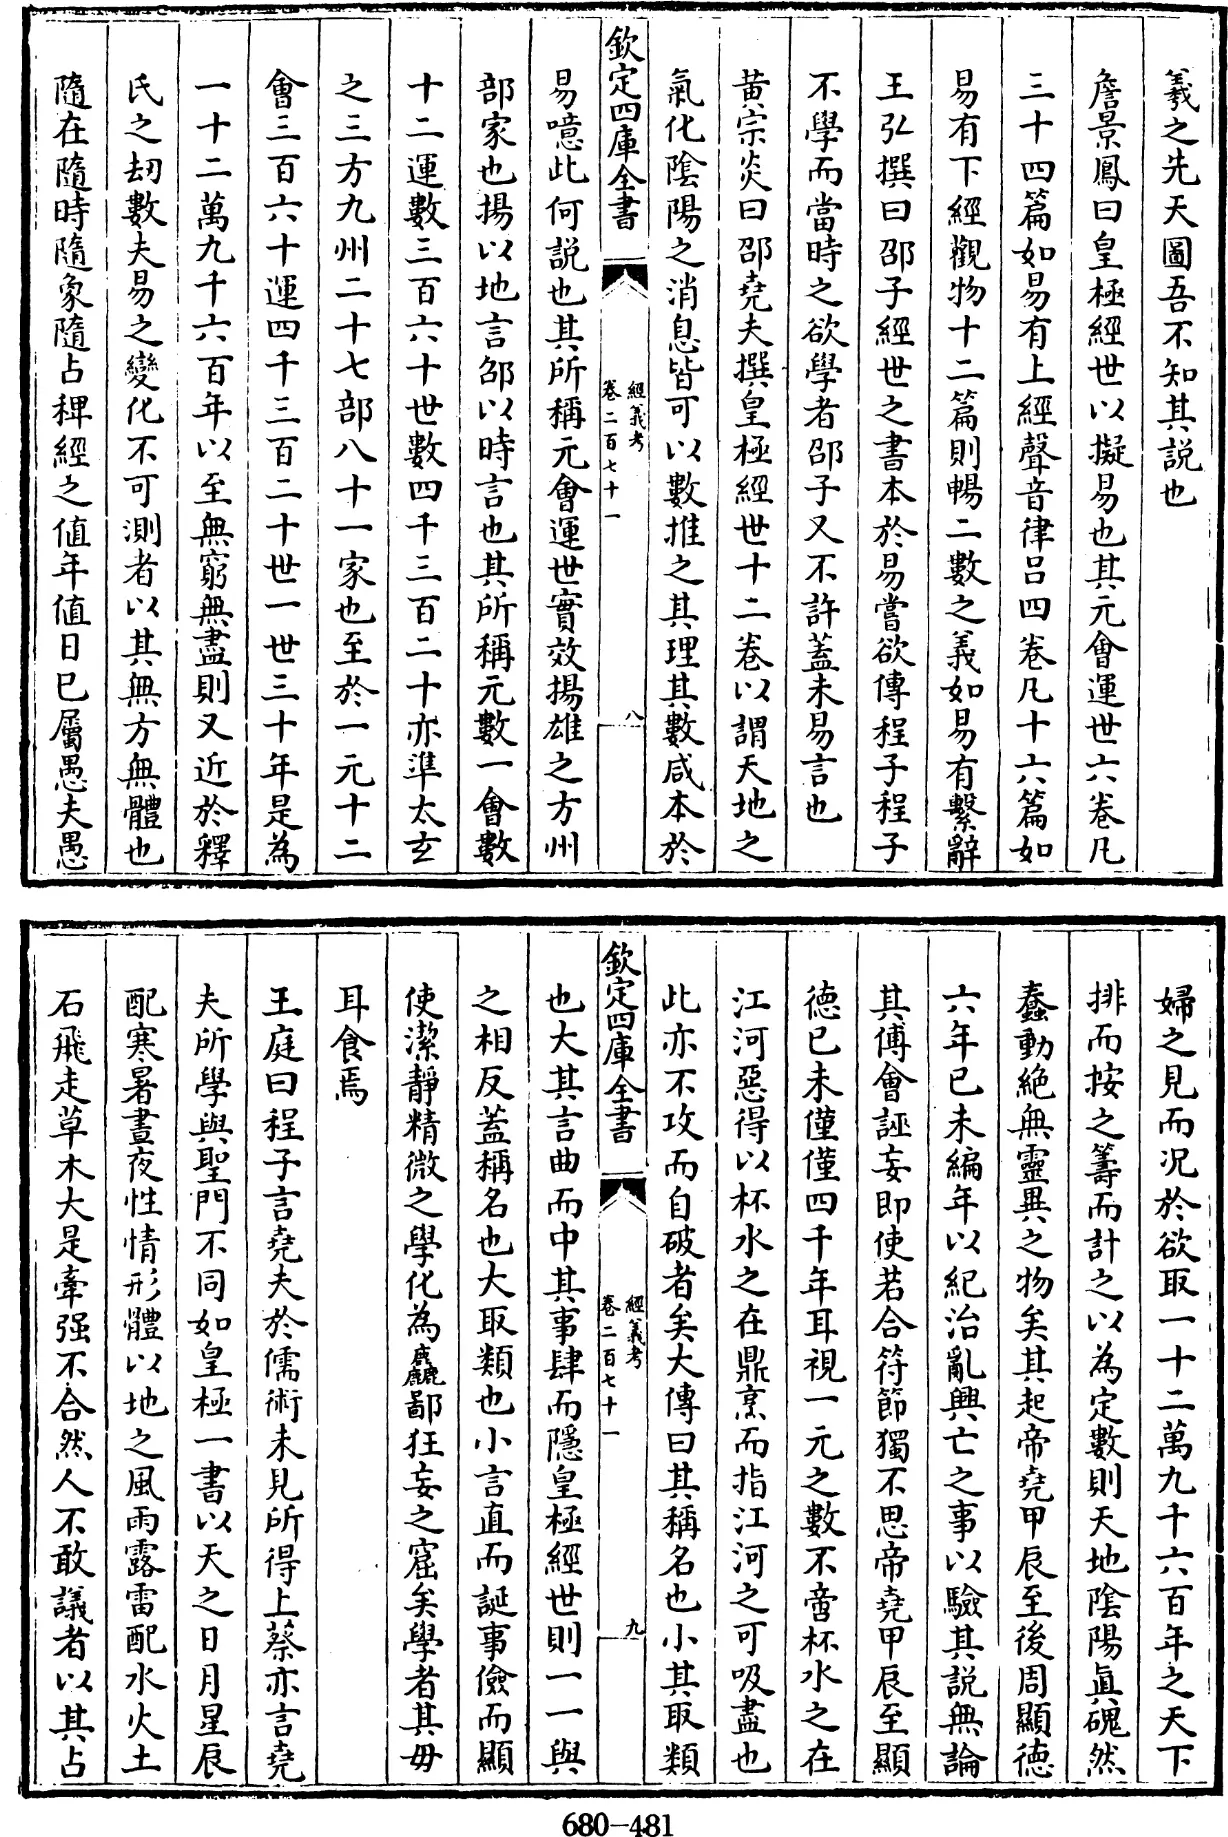 羲之先天圖吾不知其説也
詹景鳳曰皇極經世以擬易也其元會運世六卷凡
三十四篇如易有上經聲音律吕四卷凡十六篇如
易有下經觀物十二篇則暢二數之義如易有繫辭
王弘撰曰邵子經世之書本於易嘗欲傳程子程子
不學而當時之欲學者邵子又不許蓋未易言也
黄宗炎曰邵堯夫撰皇極經世十二卷以謂天地之
氣化陰陽之消息皆可以數推之其理其數咸本於
欽定四庫全書
經義考
卷二百七十一
八
易噫此何説也其所稱元會運世實效揚雄之方州
部家也揚以地言邵以時言也其所稱元數一會數
十二運數三百六十世數四千三百二十亦準太玄
之三方九州二十七部八十一家也至於一元十二
會三百六十運四千三百二十世一世三十年是為
一十二萬九千六百年以至無窮無盡則又近於釋
氏之刧數夫易之變化不可測者以其無方無體也
隨在隨時隨象隨占稗經之值年值日已屬愚夫愚
婦之見而况於欲取一十二萬九千六百年之天下
排而按之籌而計之以為定數則天地陰陽眞磈然
蠢動絶無靈異之物矣其起帝堯甲辰至後周顯德
六年已未編年以紀治亂興亡之事以驗其説無論
其傅會誣妄即使若合符節獨不思帝堯甲辰至顯
德已未僅僅四千年耳視一元之數不啻杯水之在
江河惡得以杯水之在鼎烹而指江河之可吸盡也
此亦不攻而自破者矣大傳曰其稱名也小其取類
欽定四庫全書
經義考
卷二百七十一
九
也大其言曲而中其事肆而隱皇極經世則一一與
之相反蓋稱名也大取類也小言直而誕事儉而顯
使潔靜精微之學化為麤鄙狂妄之窟矣學者其毋
耳食焉
王庭曰程子言堯夫於儒術未見所得上蔡亦言堯
夫所學與聖門不同如皇極一書以天之日月星辰
配寒暑晝夜性情形體以地之風雨露雷配水火土
石飛走草木大是牽强不合然人不敢議者以其占
680-481